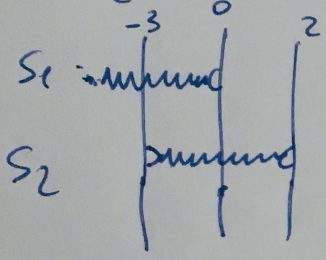 -3 0 2
S1
S2